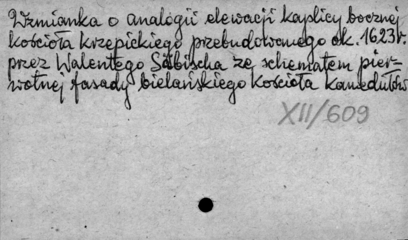 Wzmianka o analogii elewacji kaplicy bocznej
kościoła krzepickiego przebudowanego ok. 1623 r.
przez Walentego Säbischa ze schematem pier-
wotnej fasady bielańskiego kościoła kamedułów
XII/609